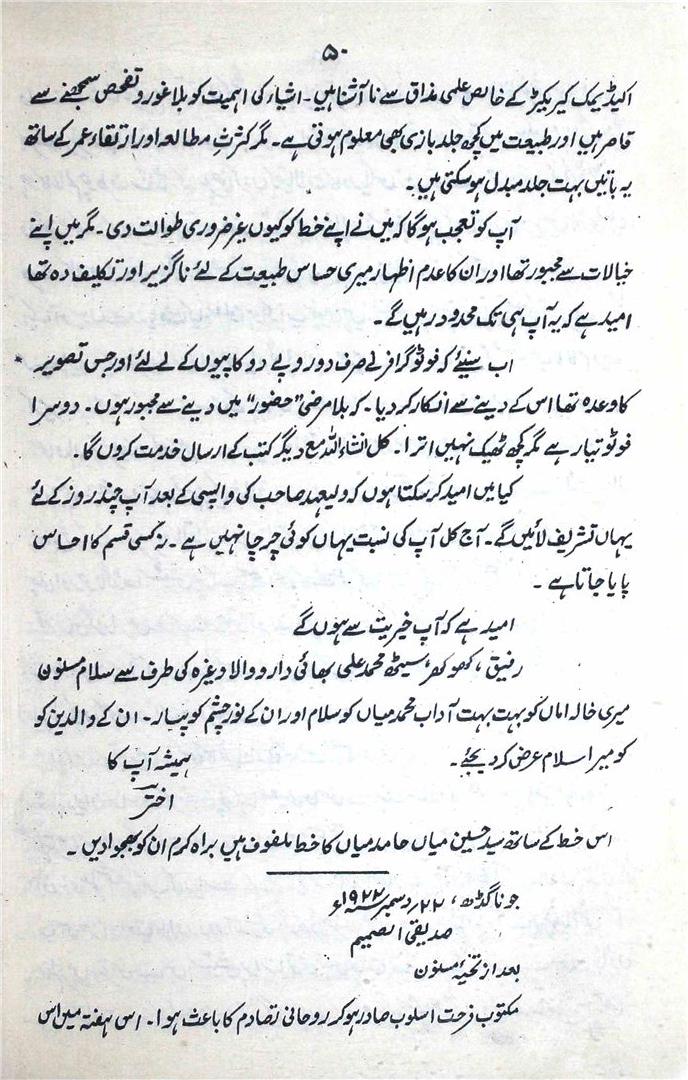 ۵۰
اکیڈیمک کیریکیڑ کے خالص علمی مذاق سے نا آشنا ہیں۔ اشیاء کی اہمیت کو بلا غور و تفحص سمجھنے سے
قاصر ہیں اور طبیعت میں کچھ جلد بازی بھی معلوم ہوتی ہے۔ مگر کثرتِ مطالعہ اور ارتقاء عمر کے ساتھ
یہ باتیں بہت جلد مبدل ہو سکتی ہیں۔
آپ کو تعجب ہو گا کہ میں نے اپنے خط کو کیوں غیر ضروری طوالت دی۔ مگر میں اپنے
خیالات سے مجبور تھا اور ان کا عدم اظہار میری حساس طبیعت کے لئے ناگزیر اور تکلیف دہ تھا
امید ہے کہ یہ آپ ہی تک محدود رہیں گے۔
اب سنیئے کہ فوٹو گرافر نے صرف دو روپے دو کاپیوں کے لے لئے اور جس تصویر
کا وعدہ تھا اس کے دینے سے انکار کر دیا۔ کہ بلا مرضی "حضور" میں دینے سے مجبور ہوں۔ دوسرا
فوٹو تیار ہے مگر کچھ ٹھیک نہیں اترا۔ کل انشاء اللہ مع دیگر کتب کے ارسال خدمت کروں گا۔
کیا میں امید کر سکتا ہوں کہ ولیعہد صاحب کی واپسی کے بعد آپ چند روز کے لئے
یہاں تشریف لائیں گے۔ آج کل آپ کی نسبت یہاں کوئی چرچا نہیں ہے۔ نہ کسی قسم کا احساس
پایا جاتا ہے۔
امید ہے کہ آپ خیریت سے ہوں گے
رفیق، کھوکھر، سیٹھ محمد علی بھائی دارو والا وغیرہ کی طرف سے سلام مسنون
میری خالہ اماں کو بہت بہت آداب محمد میاں کو سلام اور ان کے نور چشم کو پیار۔ ان کے والدین کو
کو میرا سلام عرض کر دیجئے۔
ہمیشہ آپ کا
اختر
اس خط کے ساتھ سید حسین میاں حامد میاں کا خط ملفوف ہیں براہ کرم ان کو بھجوا دیں۔
جونا گڈھ، ۲۲؍ دسمبر ۱۹۲۲ء
صدیقی الصمیم
بعد از تحیۂ مسنون
مکتوب فرحت اسلوب صادر ہو کر روحانی تصادم کا باعث ہوا۔ اس ہفتہ میں اس